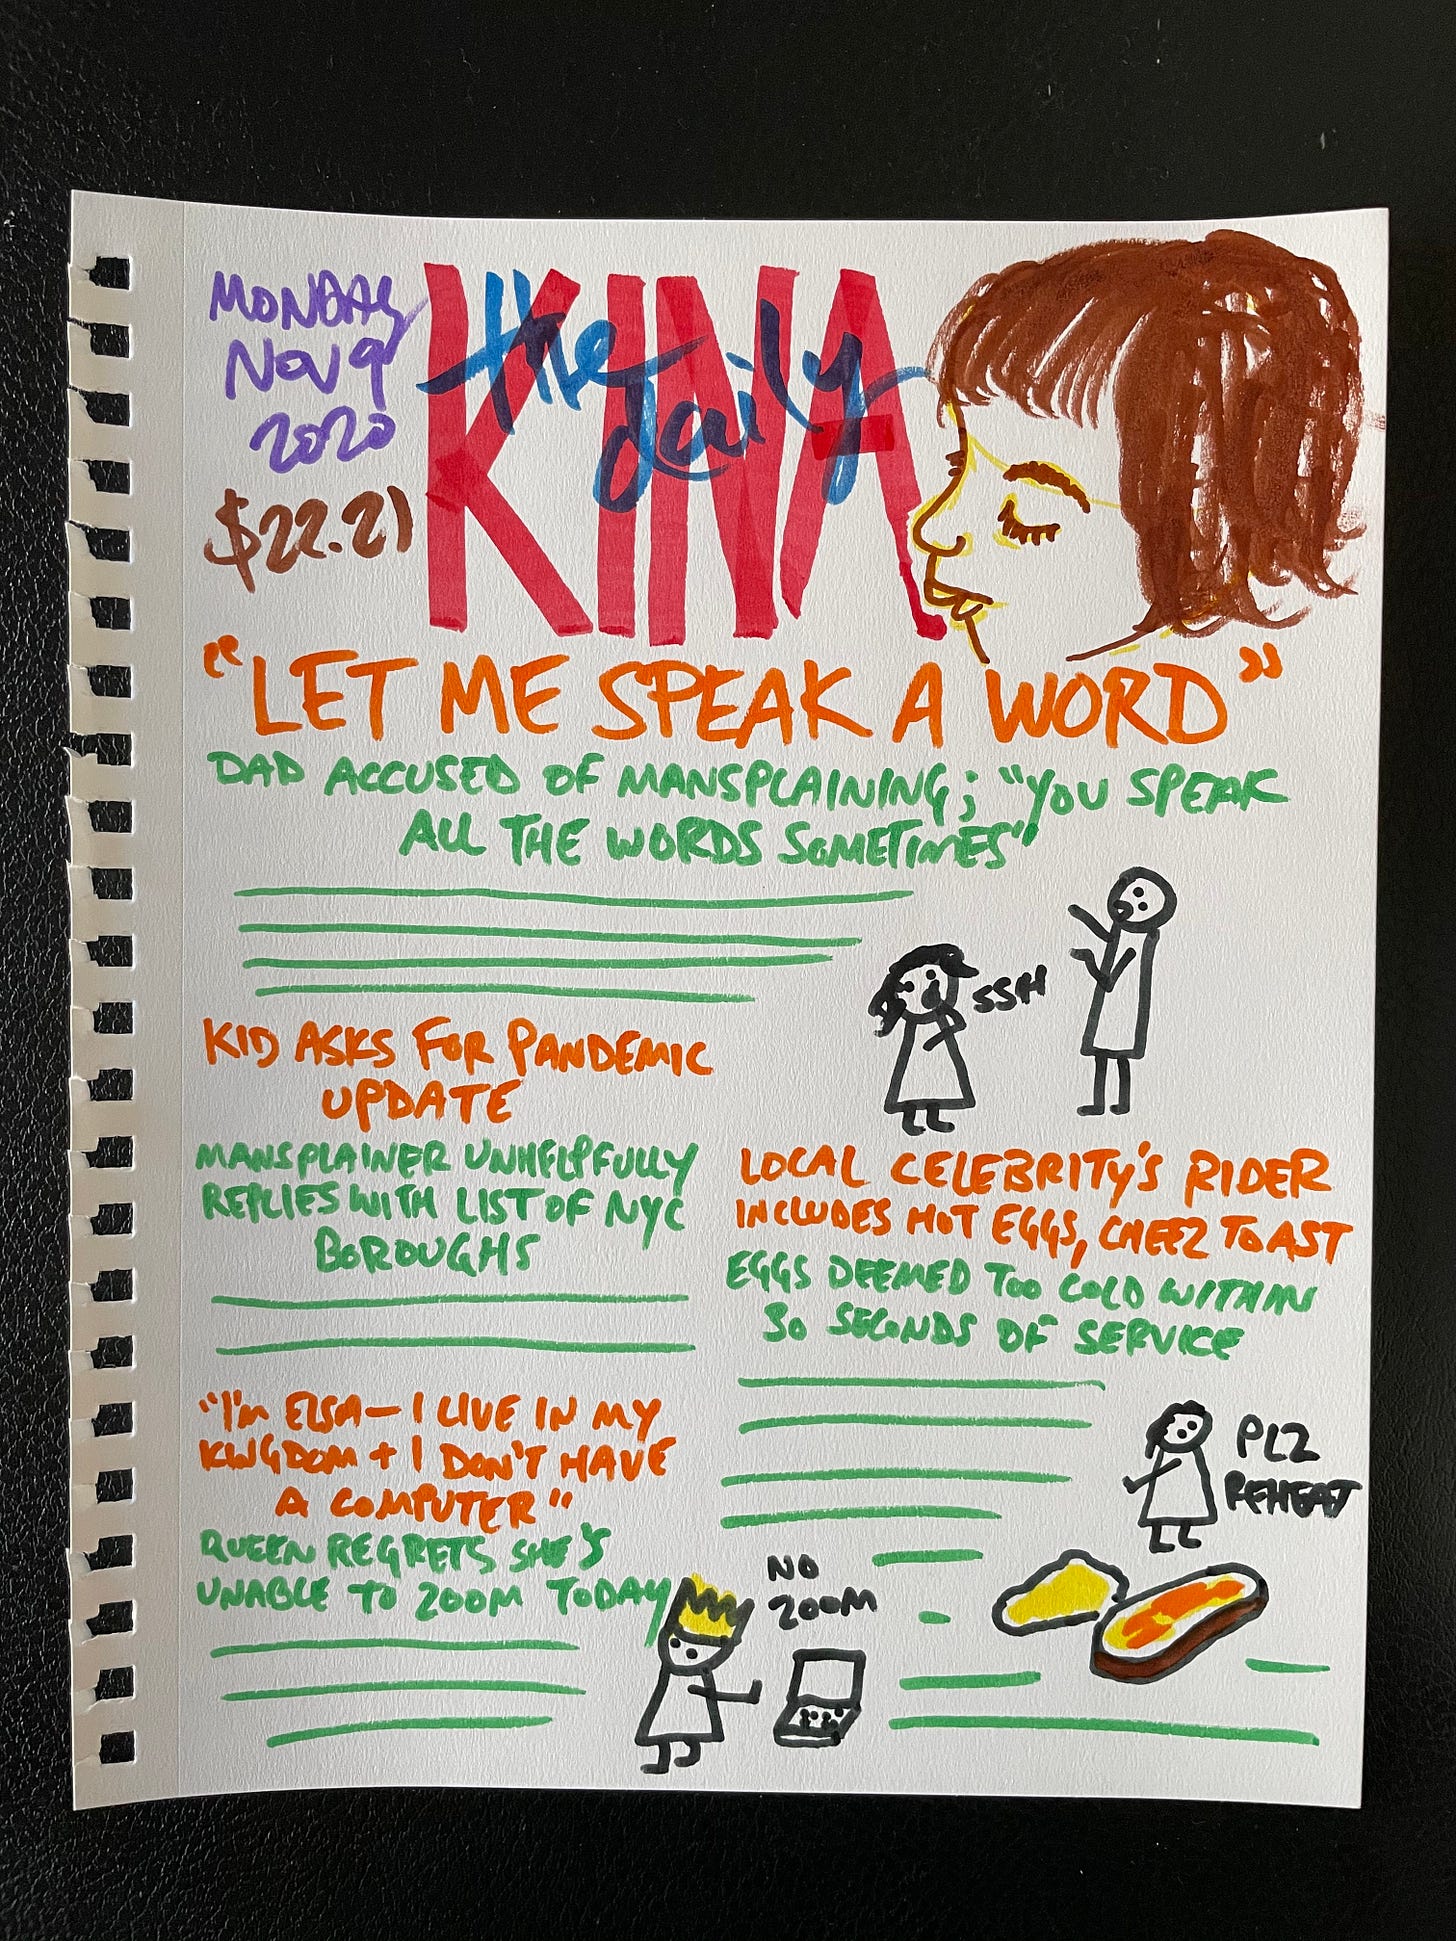 MONDAY
NOV 9
2020
$22.21
the daily
KINA
"LET ME SPEAK A WORD"
DAD ACCUSED OF MANSPLAINING; "YOU SPEAK
ALL THE WORDS SOMETIMES"
SSH
KID ASKS FOR PANDEMIC
UPDATE
MANSPLAINER UNHELPFULLY
REPLIES WITH LIST OF NYC
BOROUGHS
LOCAL CELEBRITY'S RIDER
INCLUDES HOT EGGS, CHEEZ TOAST
EGGS DEEMED TOO COLD WITHIN
30 SECONDS OF SERVICE
PLZ
REHEAT
"I'm ELSA — I LIVE IN MY
KINGDOM + I DON'T HAVE
A COMPUTER"
QUEEN REGRETS SHE'S
UNABLE TO ZOOM TODAY
NO
ZOOM